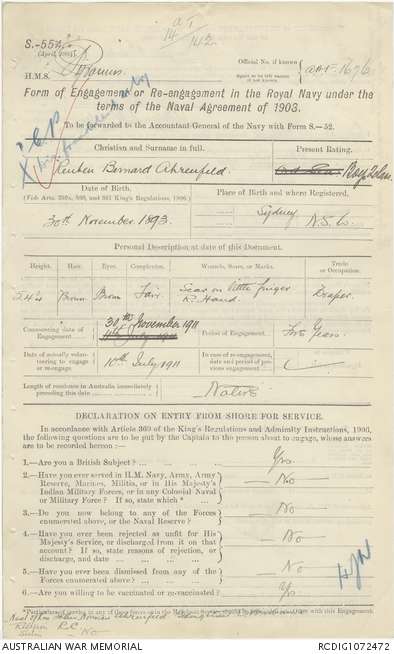 S.—554
(April, 1904)
H.M.S. Pyramus
Official No. if known
1676
Form of Engagement or Re-engagement in the Royal Navy under the
terms of the Naval Agreement of 1903.
To be forwarded to the Accountant-General of the Navy with Form S.—52.
Christian and Surname in full.
Present Rating.
Reuben Bernard Ahrenfeld
Boy 2 Class
Date of Birth.
Place of Birth and where Registered.
30th November 1893.
Sydney N.S.W.
Personal Description at date of this Document.
Height.
Hair.
Eyes.
Complexion.
Wounds, Scars, or Marks.
Trade
or Occupation.
Brown
Brown
Fair
Scar on little finger
R. Hand.
Draper.
Commencing date of
Engagement
30th November 1911
Period of Engagement.
Five Years.
Date of actually volun-
teering to engage
or re-engage
10th July 1911
In case of re-engagement,
date and period of pre-
vious engagement
Length of residence in Australia immediately
preceding this date
Native
DECLARATION ON ENTRY FROM SHORE FOR SERVICE.
In accordance with Article 369 of the King's Regulations and Admiralty Instructions, 1906,
the following questions are to be put by the Captain to the person about to engage, whose answers
are to be recorded hereon:—
1.—Are you a British Subject?
Yes.
2.—Have you ever served in H.M. Navy, Army, Army
Reserve, Marines, Militia, or in His Majesty's
Indian Military Forces, or in any Colonial Naval
or Military Force? If so, state which*
No
3.—Do you now belong to any of the Forces
enumerated above, or the Naval Reserve?
No
4.—Have you ever been rejected as unfit for His
Majesty's Service, or discharged from it on that
account? If so, state reasons of rejection, or
discharge, and date
No
5.—Have you ever been dismissed from any of the
Forces enumerated above?
No
6.—Are you willing to be vaccinated or re-vaccinated?
Yes.
Ahrenfeld
Religion R.C.
Swim No
AUSTRALIAN WAR MEMORIAL
RCDIG1072472